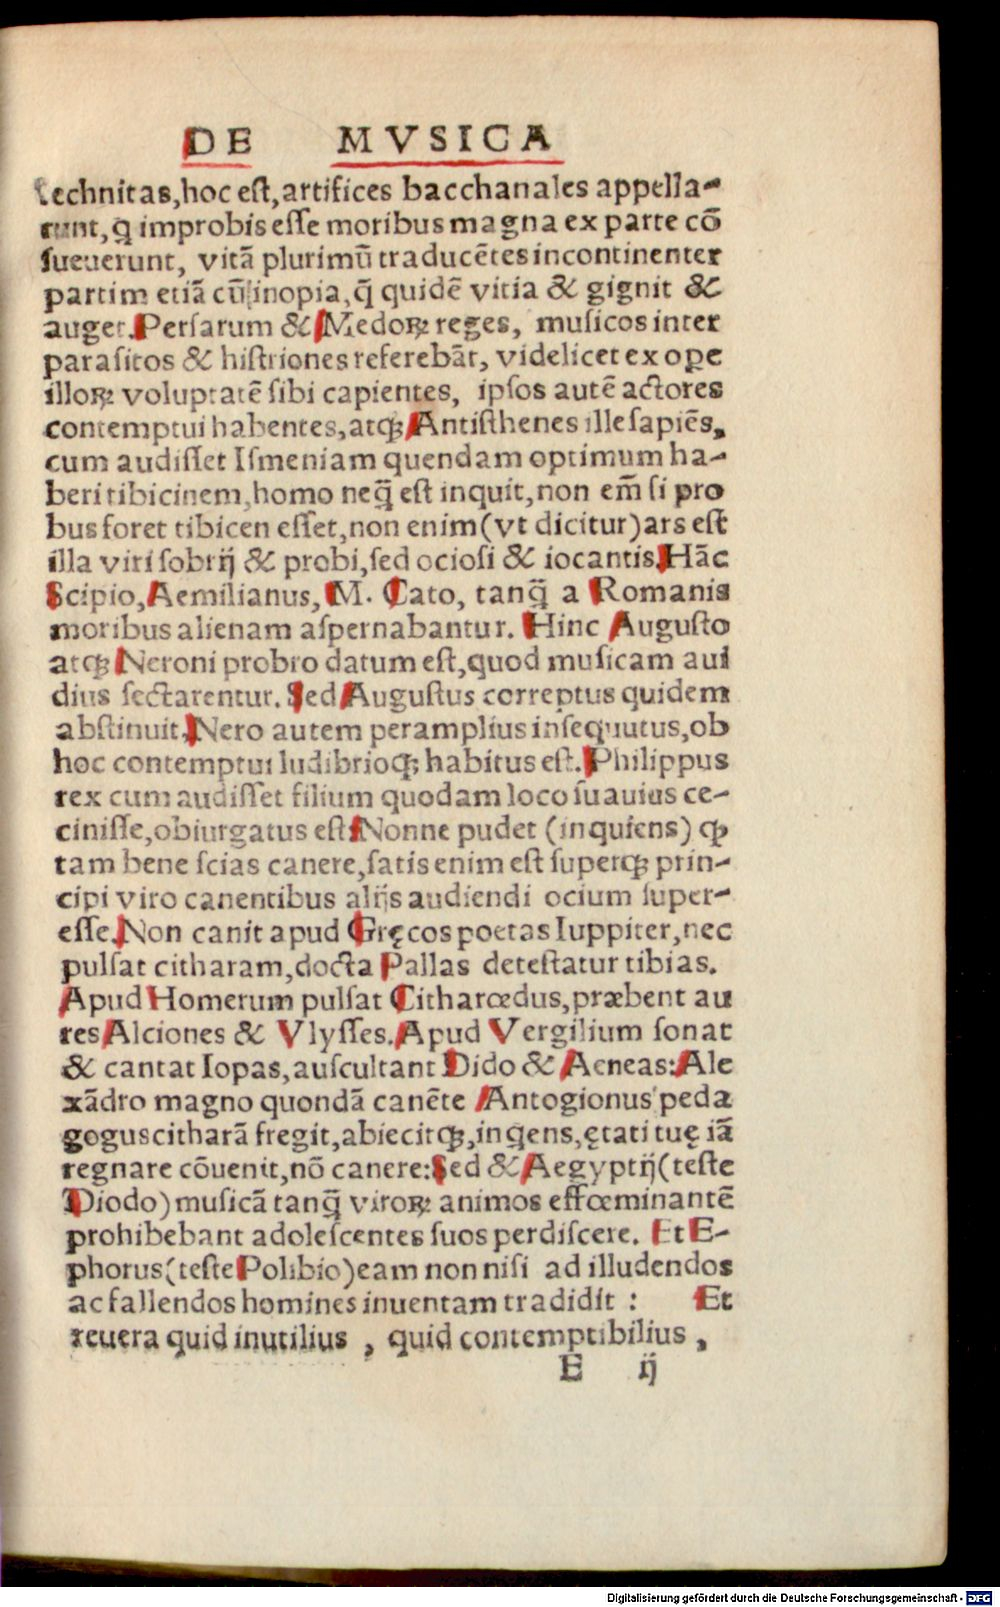 DE MVSICA
technitas, hoc eſt, artifices bacchanales appella-
runt, q̃ improbis eſſe moribus magna ex parte cō
ſueuerunt, vitã plurimũ traducẽtes incontinenter
partim etiã cũ inopia, q̃ quidẽ vitia & gignit &
auget. Perſarum & Medoꝝ reges, muſicos inter
paraſitos & hiſtriones referebãt, videlicet ex oꝑe
illoꝝ voluptatẽ ſibi capientes, ipſos autẽ actores
contemptui habentes, atqꝫ Antiſthenes ille ſapiẽs,
cum audiſſet Iſmeniam quendam optimum ha-
beri tibicinem, homo neq̃ eſt inquit, non em̃ ſi pro
bus foret tibicen eſſet, non enim (vt dicitur) ars eſt
illa viri ſobrij & probi, ſed ocioſi & iocantis. Hãc
Scipio, Aemilianus, M. Cato, tanq̃ a Romanis
moribus alienam aſpernabantur. Hinc Auguſto
atqꝫ Neroni probro datum eſt, quod muſicam aui
dius ſectarentur. Sed Auguſtus correptus quidem
abſtinuit, Nero autem peramplius inſequutus, ob
hoc contemptui ludibrioqꝫ habitus eſt. Philippus
rex cum audiſſet filium quodam loco ſuauius ce-
ciniſſe, obiurgatus eſt: Nonne pudet (inquiens) ꝙ
tam bene ſcias canere, ſatis enim eſt ſuperqꝫ prin-
cipi viro canentibus alijs audiendi ocium ſuper-
eſſe. Non canit apud Gręcos poetas Iuppiter, nec
pulſat citharam, docta Pallas deteſtatur tibias.
Apud Homerum pulſat Citharœdus, præbent au
res Alciones & Vlyſſes. Apud Vergilium ſonat
& cantat Iopas, auſcultant Dido & Aeneas: Ale
xãdro magno quondã canẽte Antogionus peda
gogus citharã fregit, abiecitqꝫ, inq̇ens, ętati tuę iã
regnare cõuenit, nõ canere: Sed & Aegyptij (teſte
Diodo) muſicã tanq̃ viroꝝ animos effœminantẽ
prohibebant adoleſcentes ſuos perdiſcere. Et E-
phorus (teſte Polibio) eam non niſi ad illudendos
ac fallendos homines inuentam tradidit : Et
reuera quid inutilius , quid contemptibilius ,
E ij
Digitalisierung gefördert durch die Deutsche Forschungsgemeinschaft - DFG